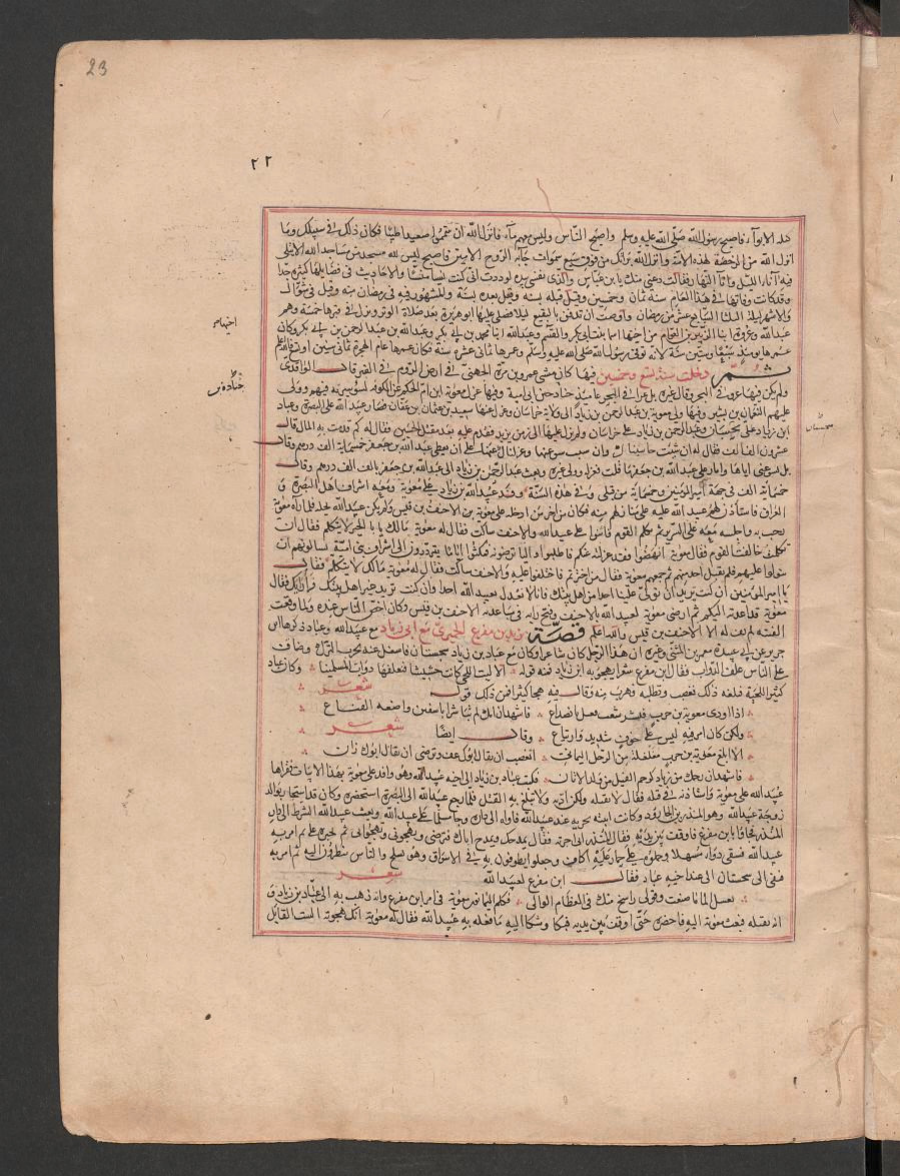 23
٢٢
فاصبح رسول الله صلى الله عليه وسلم واصبح الناس وليس معهم ماء فانزل الله ان تيمموا صعيدا طيبا فكان ذلك في سببك وما
انزل الله من الرخصة لهذه الامة وانزل الله براءتك من فوق سبع سموات جاء به الروح الامين فاصبح ليس لله مسجد من مساجد الله الا يتلى
فيه آناء الليل وآناء النهار فقالت دعني منك يا بن عباس والذي نفسي بيده لوددت اني كنت نسيا منسيا والاحاديث في فضايلها كثيرة جدا
وقد كانت وفاتها في هذا العام سنة ثمان وخمسين وقيل قبله بسنه وقيل بعده بسنة والمشهور فيه في رمضان منه وقيل في شوال
والاشهر ليلة السابع عشر من رمضان واوصت ان تدفن بالبقيع ليلا وصلى عليها ابو هريرة بعد صلاة الوتر ونزل في قبرها خمسة وهم
عبد الله وعروة ابنا الزبير بن العوام من اختها اسما بنت ابي بكر والقسم وعبد الله ابنا محمد بن ابي بكر وعبد الله بن عبد الرحمن بن ابي بكر وكان
عمرها يومئذ سبعا وستين سنة لانه توفي رسول الله صلى الله عليه وسلم وعمرها ثماني عشرة سنة فكان عمرها عام الهجرة ثماني سنين او تسع
ثم دخلت سنة تسع وخمسين فيها كان مشتى عمرو بن مرة الجهني في ارض الروم في البر قال الواقدي
ولم يكن فيها غزو في البحر وقال غيره بل غزا في البحر عامئذ جنادة بن ابي امية وفيها عزل معوية ابن ام الحكم عن الكوفه لسو سيرته فيهم وولى
عليهم النعمان بن بشير وفيها ولى معوية عبد الرحمن بن زياد ولاية خراسان وعزل عنها سعيد بن عثمان بن عفان فصار عبيد الله على البصرة وعباد
ابن زياد على سجستان وعبد الرحمن بن زياد على خراسان ولم يزل عليها الى زمن يزيد فقدم عليه بعد مقتل الحسين فقال له كم قدمت به من المال قال
عشرون الف الف فقال له ان شئت حاسبناك وان سوغناكها وعزلناك عنها على ان تعطي عبد الله بن جعفر خمسماية الف درهم وقال
بل سوغني اياها واما عبد الله بن جعفر فما قلت فعزله وولى غيره وبعث عبد الرحمن بن زياد الى عبد الله بن جعفر بالف الف درهم وقال
خمسمائة الف من جهة امير المومنين وخمسماية من قبلي وفي هذه السنة وفد عبيد الله بن زياد على معوية ومعه اشراف اهل البصرة و
العراق فاستاذن لهم عبيد الله عليه على منازلهم منه فكان من اخر من ادخل على معوية بن الاحنف بن قيس ولم يكن عبيد الله يجله فلما راه معوية
رحب به واجلسه معه على السرير ثم تكلم القوم فاثنوا على عبيد الله والاحنف ساكت فقال له معوية مالك يا با بحر لا تتكلم فقال ان
تكلمت خالفت القوم فقال معوية انهضوا فقد عزلته عنكم فاطلبوا واليا ترضونه فمكثوا اياما يترددون الى اشراف بني امية يسالونهم ان
يتولوا عليهم فلم يقبل احد منهم ثم جمعهم معوية فقال من اخترتم فاختلفوا عليه والاحنف ساكت فقال له معوية مالك لا تتكلم فقال
يا امير المومنين ان كنت تريد ان تولي علينا احدا من اهل بيتك فانا لا نعدل بعبيد الله احدا وان كنت تريد غير اهل بيتك فرايك فقال
معوية قد اعدته اليكم ثم اوصى معوية لعبيد الله بالاحنف في مباعدته الاحنف بن قيس وكان اخص الناس عنده ولما وقعت
الفتنة لم يف له الا الاحنف بن قيس والله اعلم قصة يزيد بن مفرغ الحميري مع ابني زياد مع عبيد الله وعباد ذكرها ابن
جرير عن ابي عبيدة معمر بن المثنى وغيره ان هذا الرجل كان شاعرا وكان مع عباد بن زياد بسجستان فاشتغل عنه بحرب الترك وضاق
على الناس علف الدواب فقال ابن مفرغ شعرا يهجو به ابن زياد فمنه قوله الا ليت اللحى كانت حشيشا فنعلفها دواب المسلمينا وكان عباد
كثير اللحية فبلغه ذلك فغضب وتطلبه وهرب منه وقال فيه هجا كثيرا فمن ذلك قوله شعر
اذا اودى معوية بن حرب فبشر شعب قعبك بانصداع فاشهد ان امك لم تباشر ابا سفين واضعة القناع
ولكن كان امر فيه لبس على خوف شديد وارتياع وقال ايضا شعر
الا ابلغ معوية بن حرب مغلغلة من الرجل اليماني اتغضب ان يقال ابوك عف وترضى ان يقال ابوك زان
فاشهد ان رحمك من زياد كرحم الفيل من ولد الاتان فكتب عباد بن زياد الى اخيه عبيد الله وهو وافد على معوية بهذا الابيات فقراها
عبيد الله على معوية واستاذنه في قتله فقال لا تقتله ولكن ادبه ولا تبلغ به القتل فلما رجع عبيد الله الى البصرة استحضره وكان قد استجار بوالد
زوجة عبيد الله وهو المنذر بن الجارود وكانت ابنته بحرية عند عبيد الله فاجاره واواه الى داره وجا مسلما على عبيد الله وبعث عبيد الله الشرط الى دار
المنذر فجاوا بابن مفرغ فاوقف بين يديه فقال المنذر اني اجرته فقال يمدحك ويمدح اباك فترضى ويهجوني ويهجو ابي ثم تجيره علي ثم امر به
عبيد الله فسقي دواء مسهلا وحملوه على حمار عليه اكاف وجعلوا يطوفون به في الاسواق وهو يسلح والناس ينظرون اليه ثم امر به
فنفي الى سجستان الى عند اخيه عباد فقال ابن مفرغ لعبيد الله شعر
يغسل الماء ما صنعت وقولي راسخ منك في العظام البوالي فكلم اليمانية معوية في امر ابن مفرغ وانه ذهب به الى عباد بن زياد
ان يقتله فبعث معوية اليه فاحضره حتى اوقف بين يديه فبكا وشكا اليه ما فعله به عبيد الله فقال له معوية انك هجوته الست القائل
جنادة
سجستان